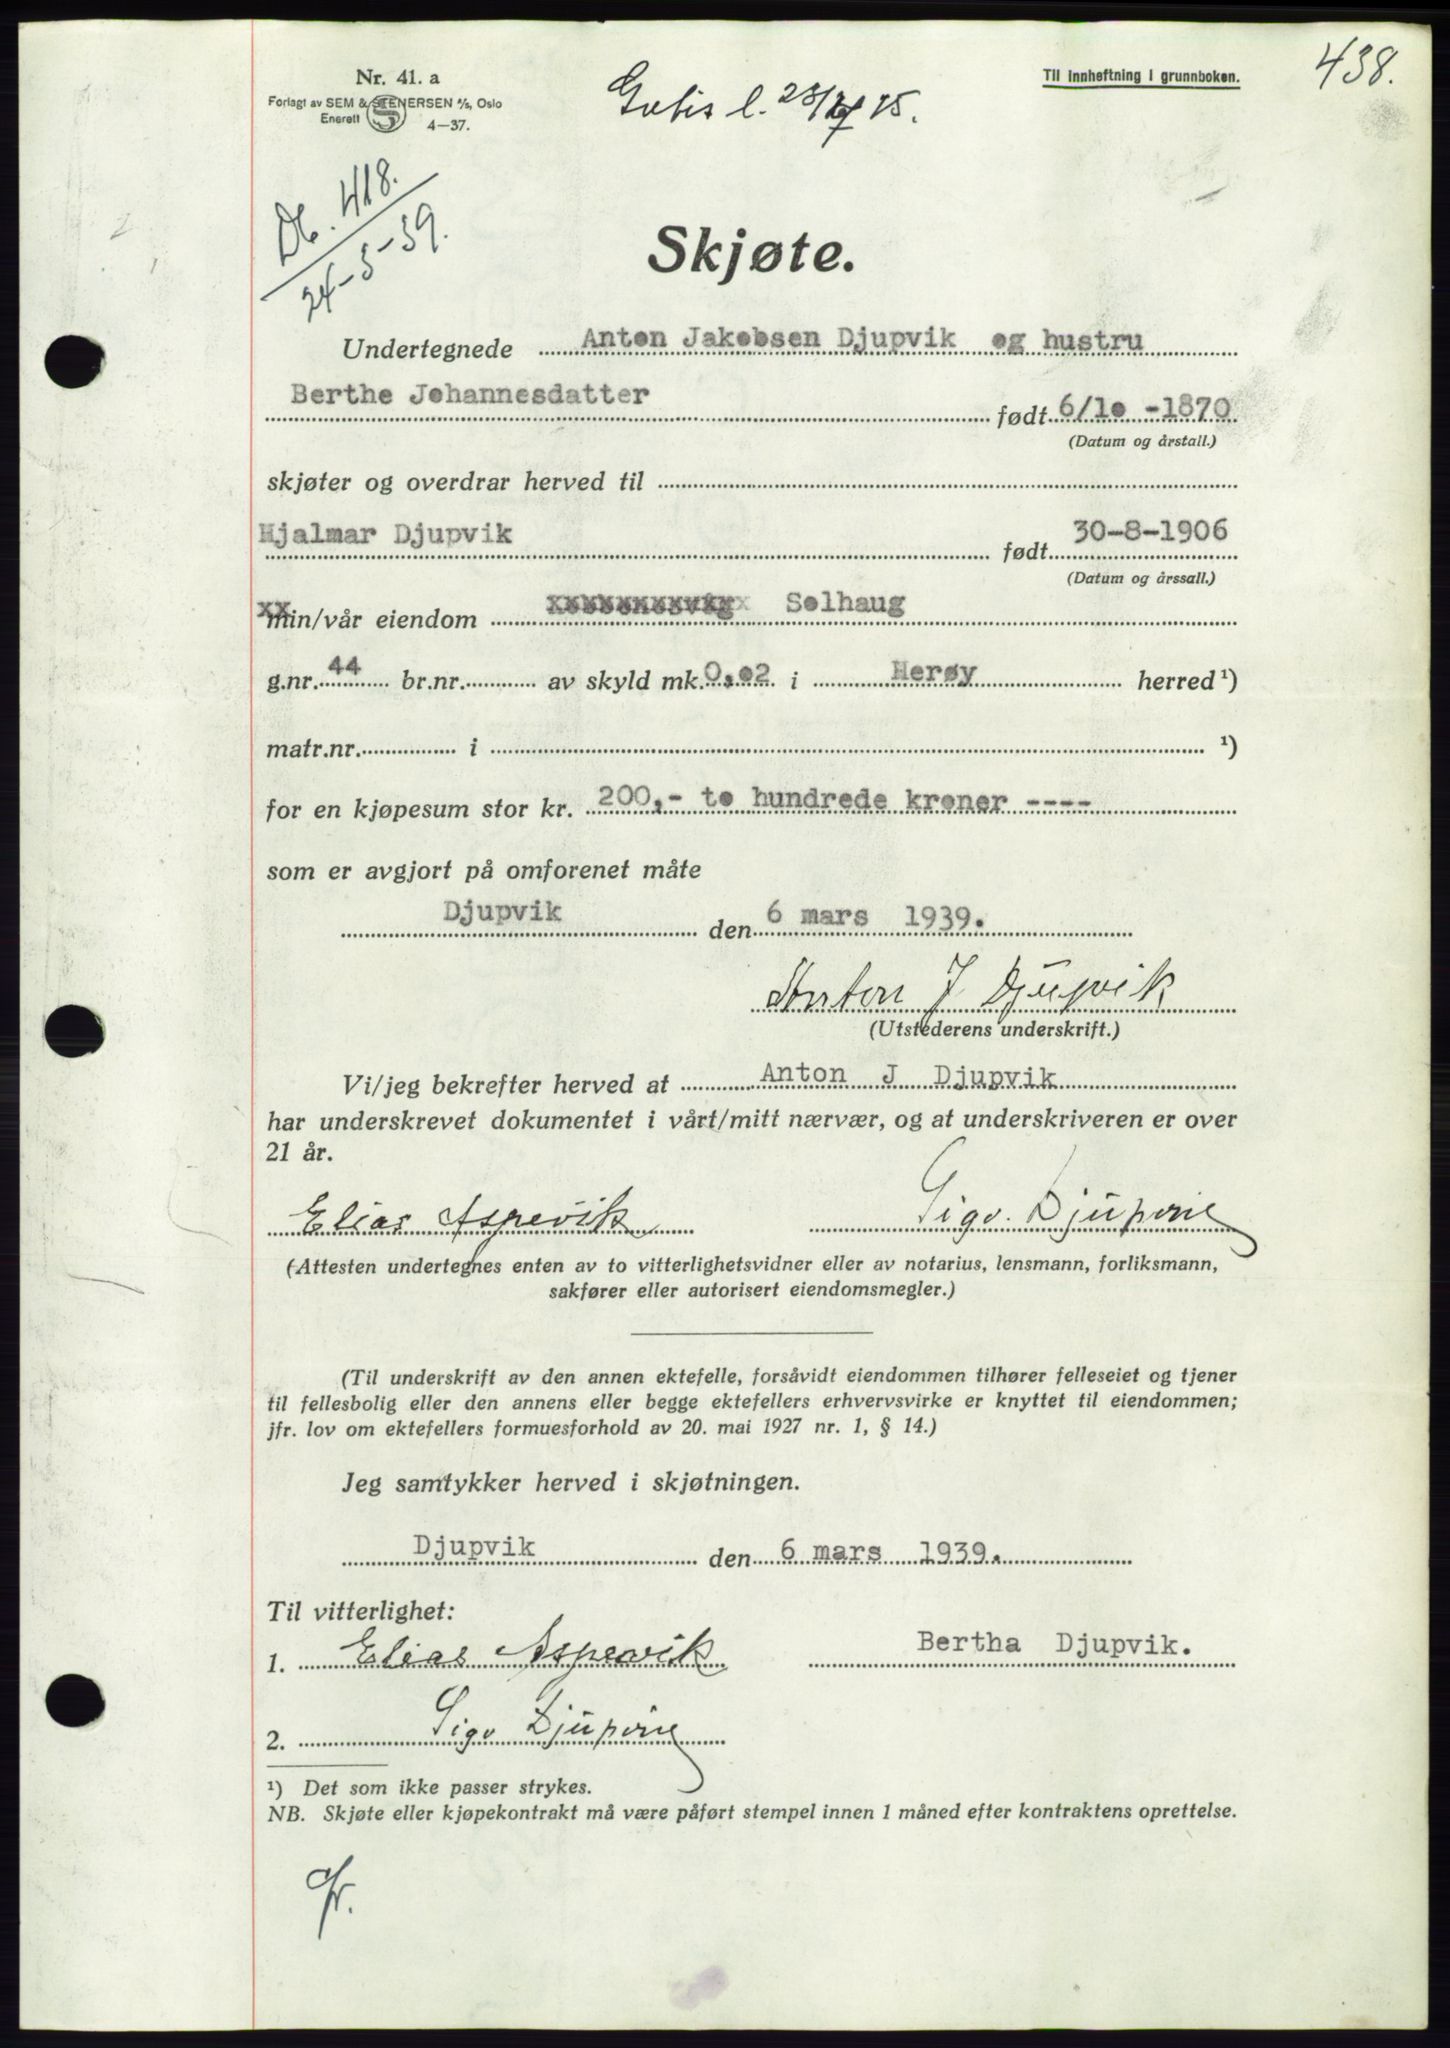 438.
Nr. 41. a
Til innheftning i grunnboken.
Forlagt av SEM & STENERSEN A/S, Oslo
Enerett
4—37.
Db. 418.
24-3-39.
Skjøte.
Undertegnede Anton Jakobsen Djupvik og hustru
Berthe Johannesdatter født 6/10 -1870
(Datum og årstall.)
skjøter og overdrar herved til
Hjalmar Djupvik født 30-8-1906
(Datum og årssall.)
min/vår eiendom Solhaug
g.nr. 44 br.nr. av skyld mk. 0,02 i Herøy herred ¹)
matr.nr. i ¹)
for en kjøpesum stor kr. 200,- to hundrede kroner ----
som er avgjort på omforenet måte
Djupvik den 6 mars 1939.
Anton J Djupvik
(Utstederens underskrift.)
Vi/jeg bekrefter herved at Anton J Djupvik
har underskrevet dokumentet i vårt/mitt nærvær, og at underskriveren er over
21 år.
Elias Aspevik Sigv. Djupvik
(Attesten undertegnes enten av to vitterlighetsvidner eller av notarius, lensmann, forliksmann,
sakfører eller autorisert eiendomsmegler.)
(Til underskrift av den annen ektefelle, forsåvidt eiendommen tilhører felleseiet og tjener
til fellesbolig eller den annens eller begge ektefellers erhvervsvirke er knyttet til eiendommen;
jfr. lov om ektefellers formuesforhold av 20. mai 1927 nr. 1, § 14.)
Jeg samtykker herved i skjøtningen.
Djupvik den 6 mars 1939.
Til vitterlighet:
1. Elias Aspevik Bertha Djupvik.
2. Sigv Djupvik
¹) Det som ikke passer strykes.
NB. Skjøte eller kjøpekontrakt må være påført stempel innen 1 måned efter kontraktens oprettelse.